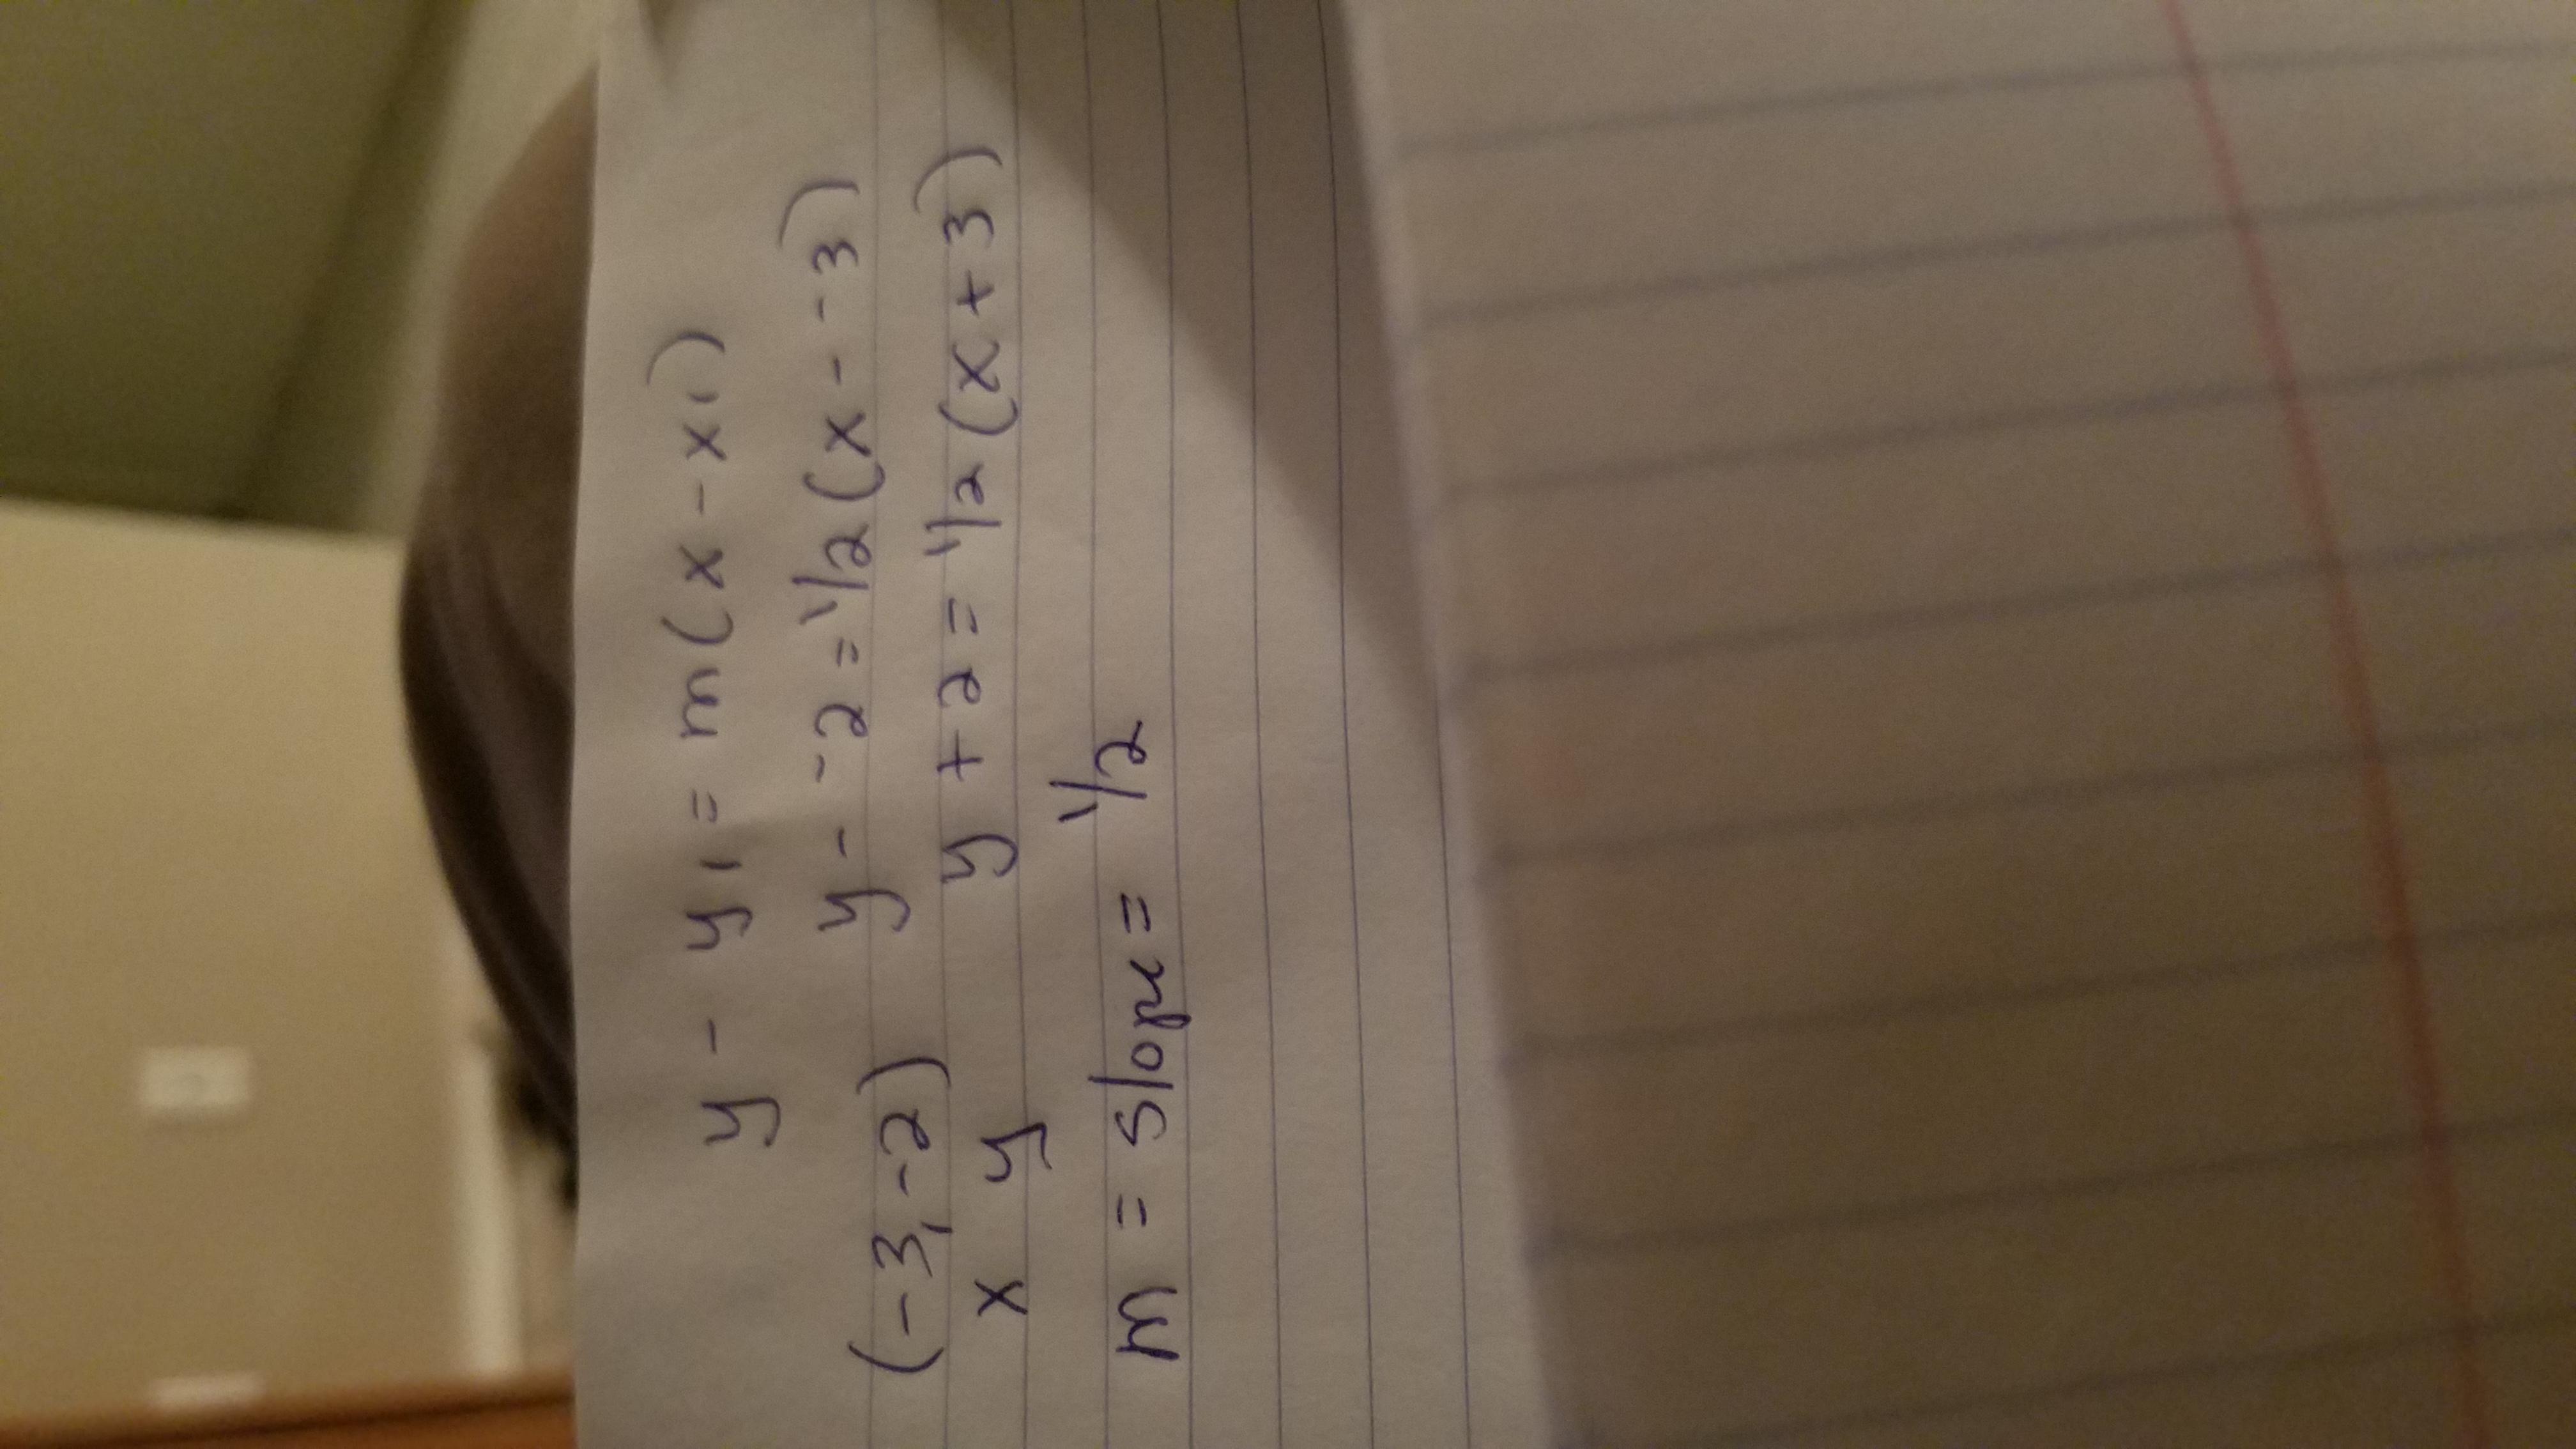 y - y1 = m(x - x1)
y - -2 = 1/2(x - -3)
(-3, -2)
y + 2 = 1/2(x + 3)
x y
m = slope = 1/2